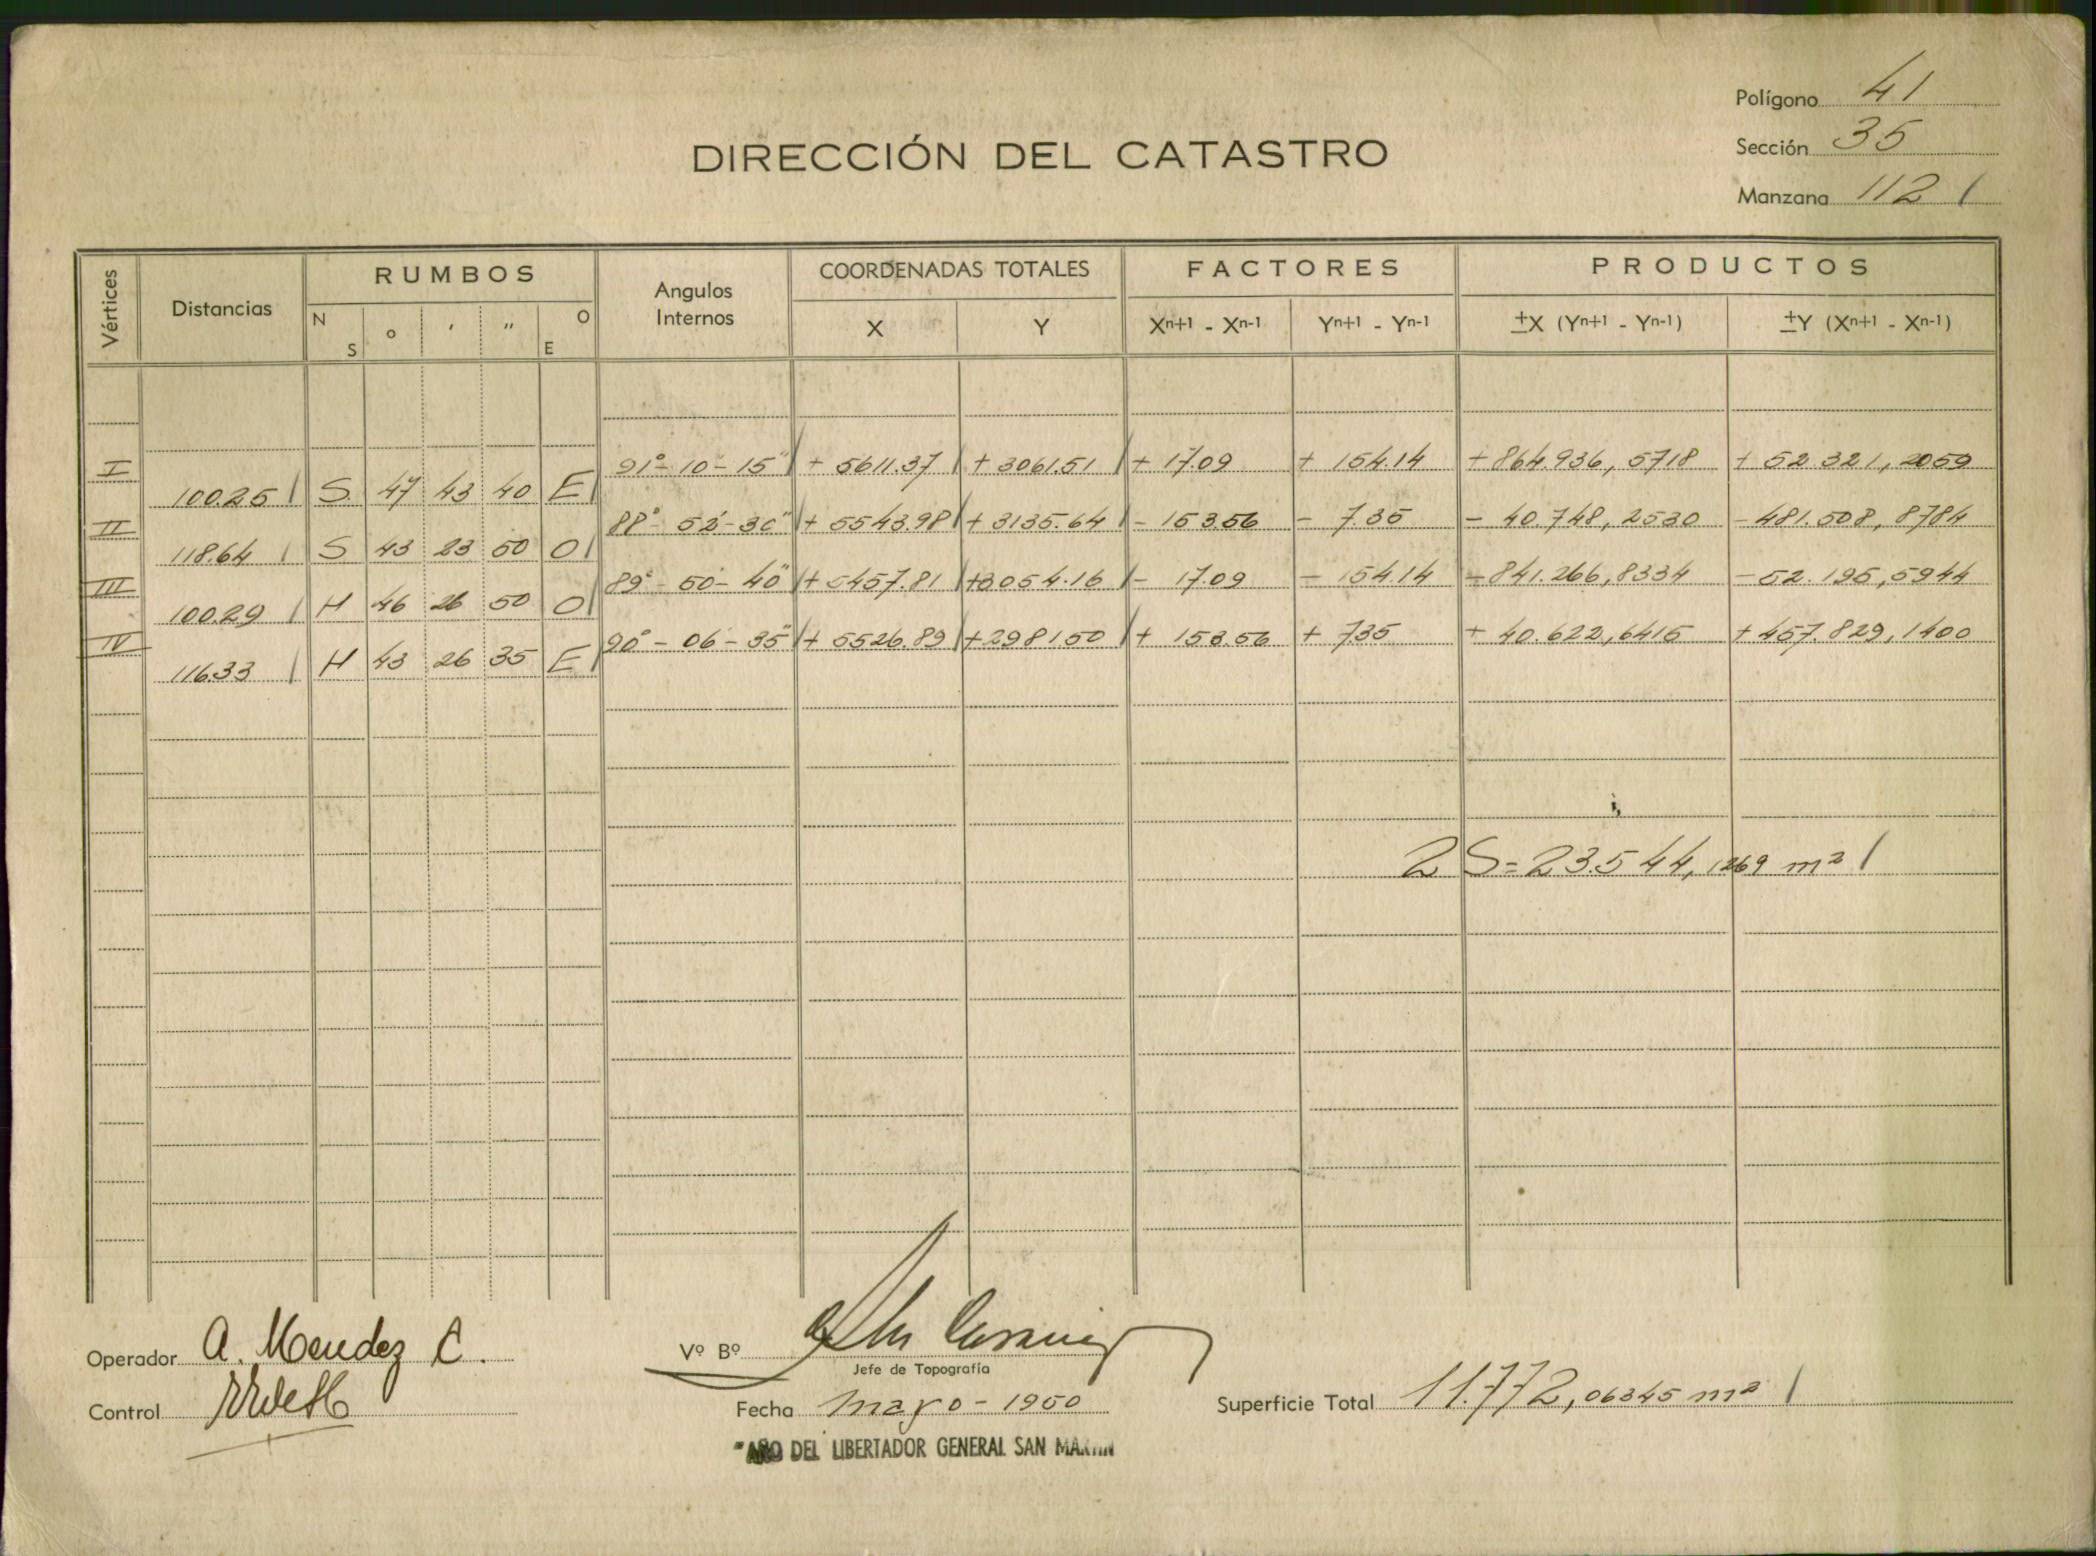 Polígono 41
DIRECCIÓN DEL CATASTRO
Sección 35
Manzana 112 /
Vértices Distancias RUMBOS N S o ' " O E Angulos Internos COORDENADAS TOTALES X Y FACTORES Xn+1 - Xn-1 Yn+1 - Yn-1 PRODUCTOS ±X (Yn+1 - Yn-1) ±Y (Xn+1 - Xn-1)
I 91° - 10 - 15" / + 5611.37 / + 3061.51 / + 17.09 + 154.14 + 864.936, 5718 + 52.321, 2059
100.25 / S. 47 43 40 E /
II 88° - 52' - 30" / + 5543.98 / + 3135.64 / - 153.56 - 7.35 - 40.748, 2530 - 481.508, 8784
118.64 / S 43 23 50 O /
III 89° - 50 - 40" / + 5457.81 / + 3054.16 / - 17.09 - 154.14 - 841.266,8334 - 52.195,5944
100.29 / N 46 26 50 O /
IV 90° - 06 - 35" / + 5526.89 / + 2981.50 / + 153.56 + 7.35 + 40.622,6415 + 457.829,1400
116.33 / N 43 26 35 E /
2 S = 23.544, 1269 m² /
Operador A. Mendez C.
Vº Bº
Jefe de Topografía
Control
Fecha mayo - 1950
Superficie Total 11.772,06345 m² /
"AÑO DEL LIBERTADOR GENERAL SAN MARTIN